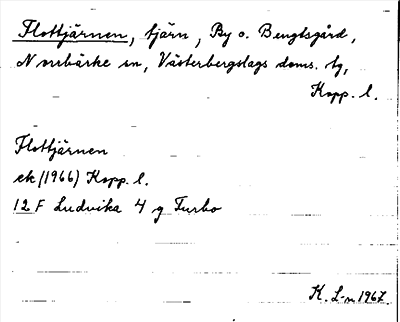 Flottjärnen, tjärn, By o. Bengtsgård,
Norrbärke sn, Västerbergslags doms. tg,
Kopp. l.
Flottjärnen
ek (1966) Kopp. l.
12 F Ludvika 4 g Turbo
K. L-n 1967.